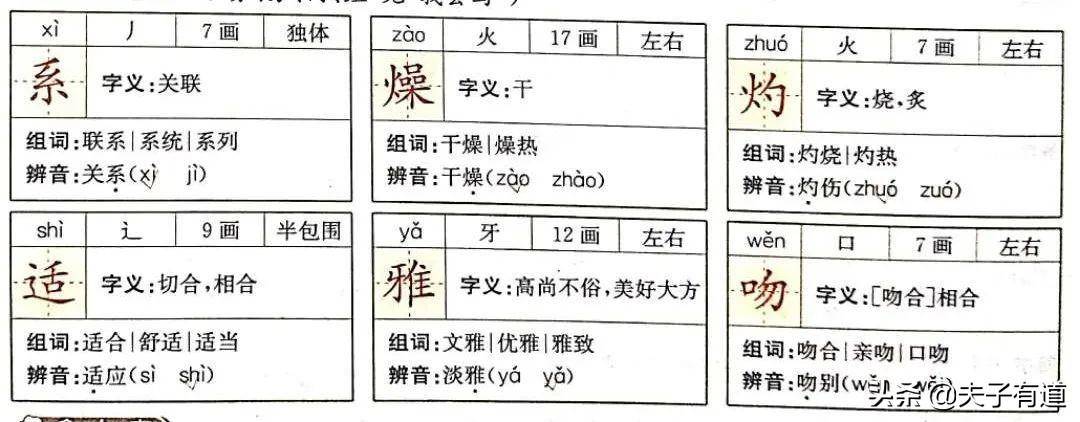 xì 丿 7画 独体
系 字义:关联
组词:联系|系统|系列
辨音:关系(xì jì)
zào 火 17画 左右
燥 字义:干
组词:干燥|燥热
辨音:干燥(zào zhào)
zhuó 火 7画 左右
灼 字义:烧,炙
组词:灼烧|灼热
辨音:灼伤(zhuó zuó)
shì 辶 9画 半包围
适 字义:切合,相合
组词:适合|舒适|适当
辨音:适应(sì shì)
yǎ 牙 12画 左右
雅 字义:高尚不俗,美好大方
组词:文雅|优雅|雅致
辨音:淡雅(yá yǎ)
wěn 口 7画 左右
吻 字义:[吻合]相合
组词:吻合|亲吻|口吻
辨音:吻别(wěn
头条@夫子有道